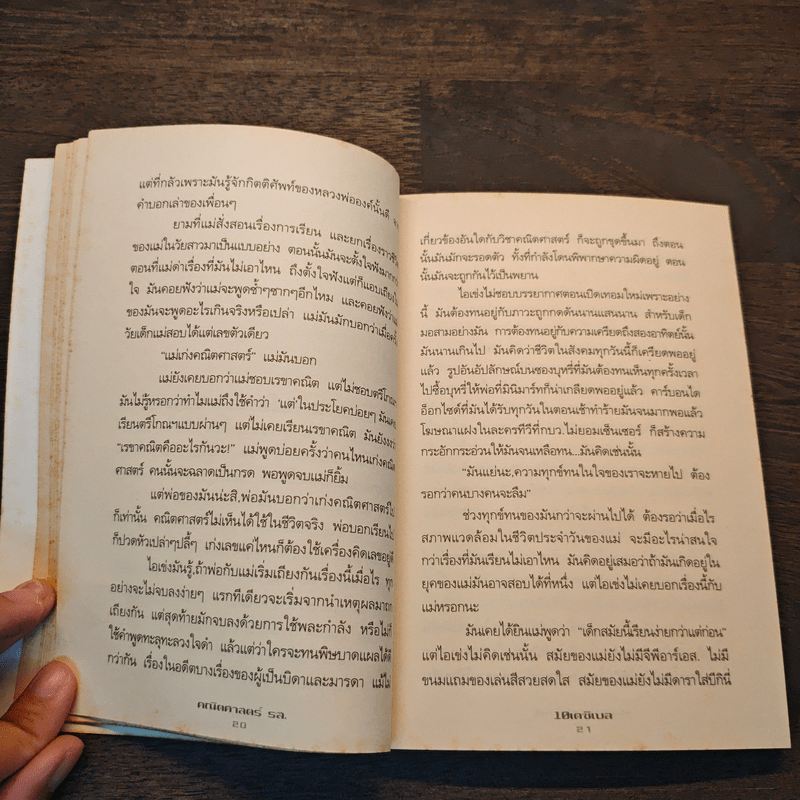 แต่ที่กลัวเพราะมันรู้จักกิตติศัพท์ของหลวงพ่อองค์นั้นดี
คำบอกเล่าของเพื่อนๆ
ยามที่แม่สั่งสอนเรื่องการเรียน และยกเรื่องราว
ของแม่ในวัยสาวมาเป็นแบบอย่าง ตอนนั้นมันจะตั้งใจฟังมากกว่า
ตอนที่แม่ด่าเรื่องที่มันไม่เอาไหน ถึงตั้งใจฟังแต่ก็แอบเถียงใน
ใจ มันคอยฟังว่าแม่จะพูดซ้ำๆซากๆอีกไหม และคอยฟังว่าแม่
ของมันจะพูดอะไรเกินจริงหรือเปล่า แม่มันมักบอกว่าเมื่อครั้ง
วัยเด็กแม่สอบได้แต่เลขตัวเดียว
“แม่เก่งคณิตศาสตร์” แม่มันบอก
แม่ยังเคยบอกว่าแม่ชอบเรขาคณิต แต่ไม่ชอบตรีโกณฯ
มันไม่รู้หรอกว่าทำไมแม่ถึงใช้คำว่า ‘แต่’ในประโยคบ่อยๆ มันเคย
เรียนตรีโกณฯแบบผ่านๆ แต่ไม่เคยเรียนเรขาคณิต มันยังงงว่า
“เรขาคณิตคืออะไรกันวะ!” แม่พูดบ่อยครั้งว่าคนไหนเก่งคณิต
ศาสตร์ คนนั้นจะฉลาดเป็นกรด พอพูดจบแม่ก็ยิ้ม
แต่พ่อของมันน่ะสิ,พ่อมันบอกว่าเก่งคณิตศาสตร์ไป
ก็เท่านั้น คณิตศาสตร์ไม่เห็นได้ใช้ในชีวิตจริง พ่อบอกเรียนไป
ก็ปวดหัวเปล่าๆปลี้ๆ เก่งเลขแค่ไหนก็ต้องใช้เครื่องคิดเลขอยู่ดี
ไอเช่งมันรู้,ถ้าพ่อกับแม่เริ่มเถียงกันเรื่องนี้เมื่อไร ทุก
อย่างจะไม่จบลงง่ายๆ แรกทีเดียวจะเริ่มจากนำเหตุผลมาถก
เถียงกัน แต่สุดท้ายมักจบลงด้วยการใช้พละกำลัง หรือไม่ก็
ใช้คำพูดทะลุทะลวงใจดำ แล้วแต่ว่าใครจะทนพิษบาดแผลได้ดี
กว่ากัน เรื่องในอดีตบางเรื่องของผู้เป็นบิดาและมารดา แม้ไม่
คณิตศาสตร์ รส.
20
เกี่ยวข้องอันใดกับวิชาคณิตศาสตร์ ก็จะถูกขุดขึ้นมา ถึงตอน
นั้นมันมักจะรอดตัว ทั้งที่กำลังโดนพิพากษาความผิดอยู่ ตอน
นั้นมันจะถูกกันไว้เป็นพยาน
ไอเช่งไม่ชอบบรรยากาศตอนเปิดเทอมใหม่เพราะอย่าง
นี้ มันต้องทนอยู่กับภาวะถูกกดดันนานแสนนาน สำหรับเด็ก
มอสามอย่างมัน การต้องทนอยู่กับความเครียดถึงสองอาทิตย์นั้น
มันนานเกินไป มันคิดว่าชีวิตในสังคมทุกวันนี้ก็เครียดพออยู่
แล้ว รูปอันอัปลักษณ์บนซองบุหรี่ที่มันต้องทนเห็นทุกครั้งเวลา
ไปซื้อบุหรี่ให้พ่อที่มินิมาร์ทก็น่าเกลียดพออยู่แล้ว คาร์บอนได
อ็อกไซด์ที่มันได้รับทุกวันในตอนเช้าทำร้ายมันจนมากพอแล้ว
โฆษณาแฝงในละครทีวีที่กบว.ไม่ยอมเซ็นเซอร์ ก็สร้างความ
กระอักกระอ่วนให้มันจนเหลือทน...มันคิดเช่นนั้น
“มันแย่นะ,ความทุกข์ทนในใจของเราจะหายไป ต้อง
รอกว่าคนบางคนจะลืม”
ช่วงทุกข์ทนของมันกว่าจะผ่านไปได้ ต้องรอว่าเมื่อไร
สภาพแวดล้อมในชีวิตประจำวันของแม่ จะมีอะไรน่าสนใจ
กว่าเรื่องที่มันเรียนไม่เอาไหน มันคิดอยู่เสมอว่าถ้ามันเกิดอยู่ใน
ยุคของแม่มันอาจสอบได้ที่หนึ่ง แต่ไอเช่งไม่เคยบอกเรื่องนี้กับ
แม่หรอกนะ
มันเคยได้ยินแม่พูดว่า “เด็กสมัยนี้เรียนง่ายกว่าแต่ก่อน”
แต่ไอเช่งไม่คิดเช่นนั้น สมัยของแม่ยังไม่มีจีพีอาร์เอส. ไม่มี
ขนมแถมของเล่นสีสวยสดใส สมัยของแม่ยังไม่มีดาราใส่บิกินี่
10เดซิเบล
21